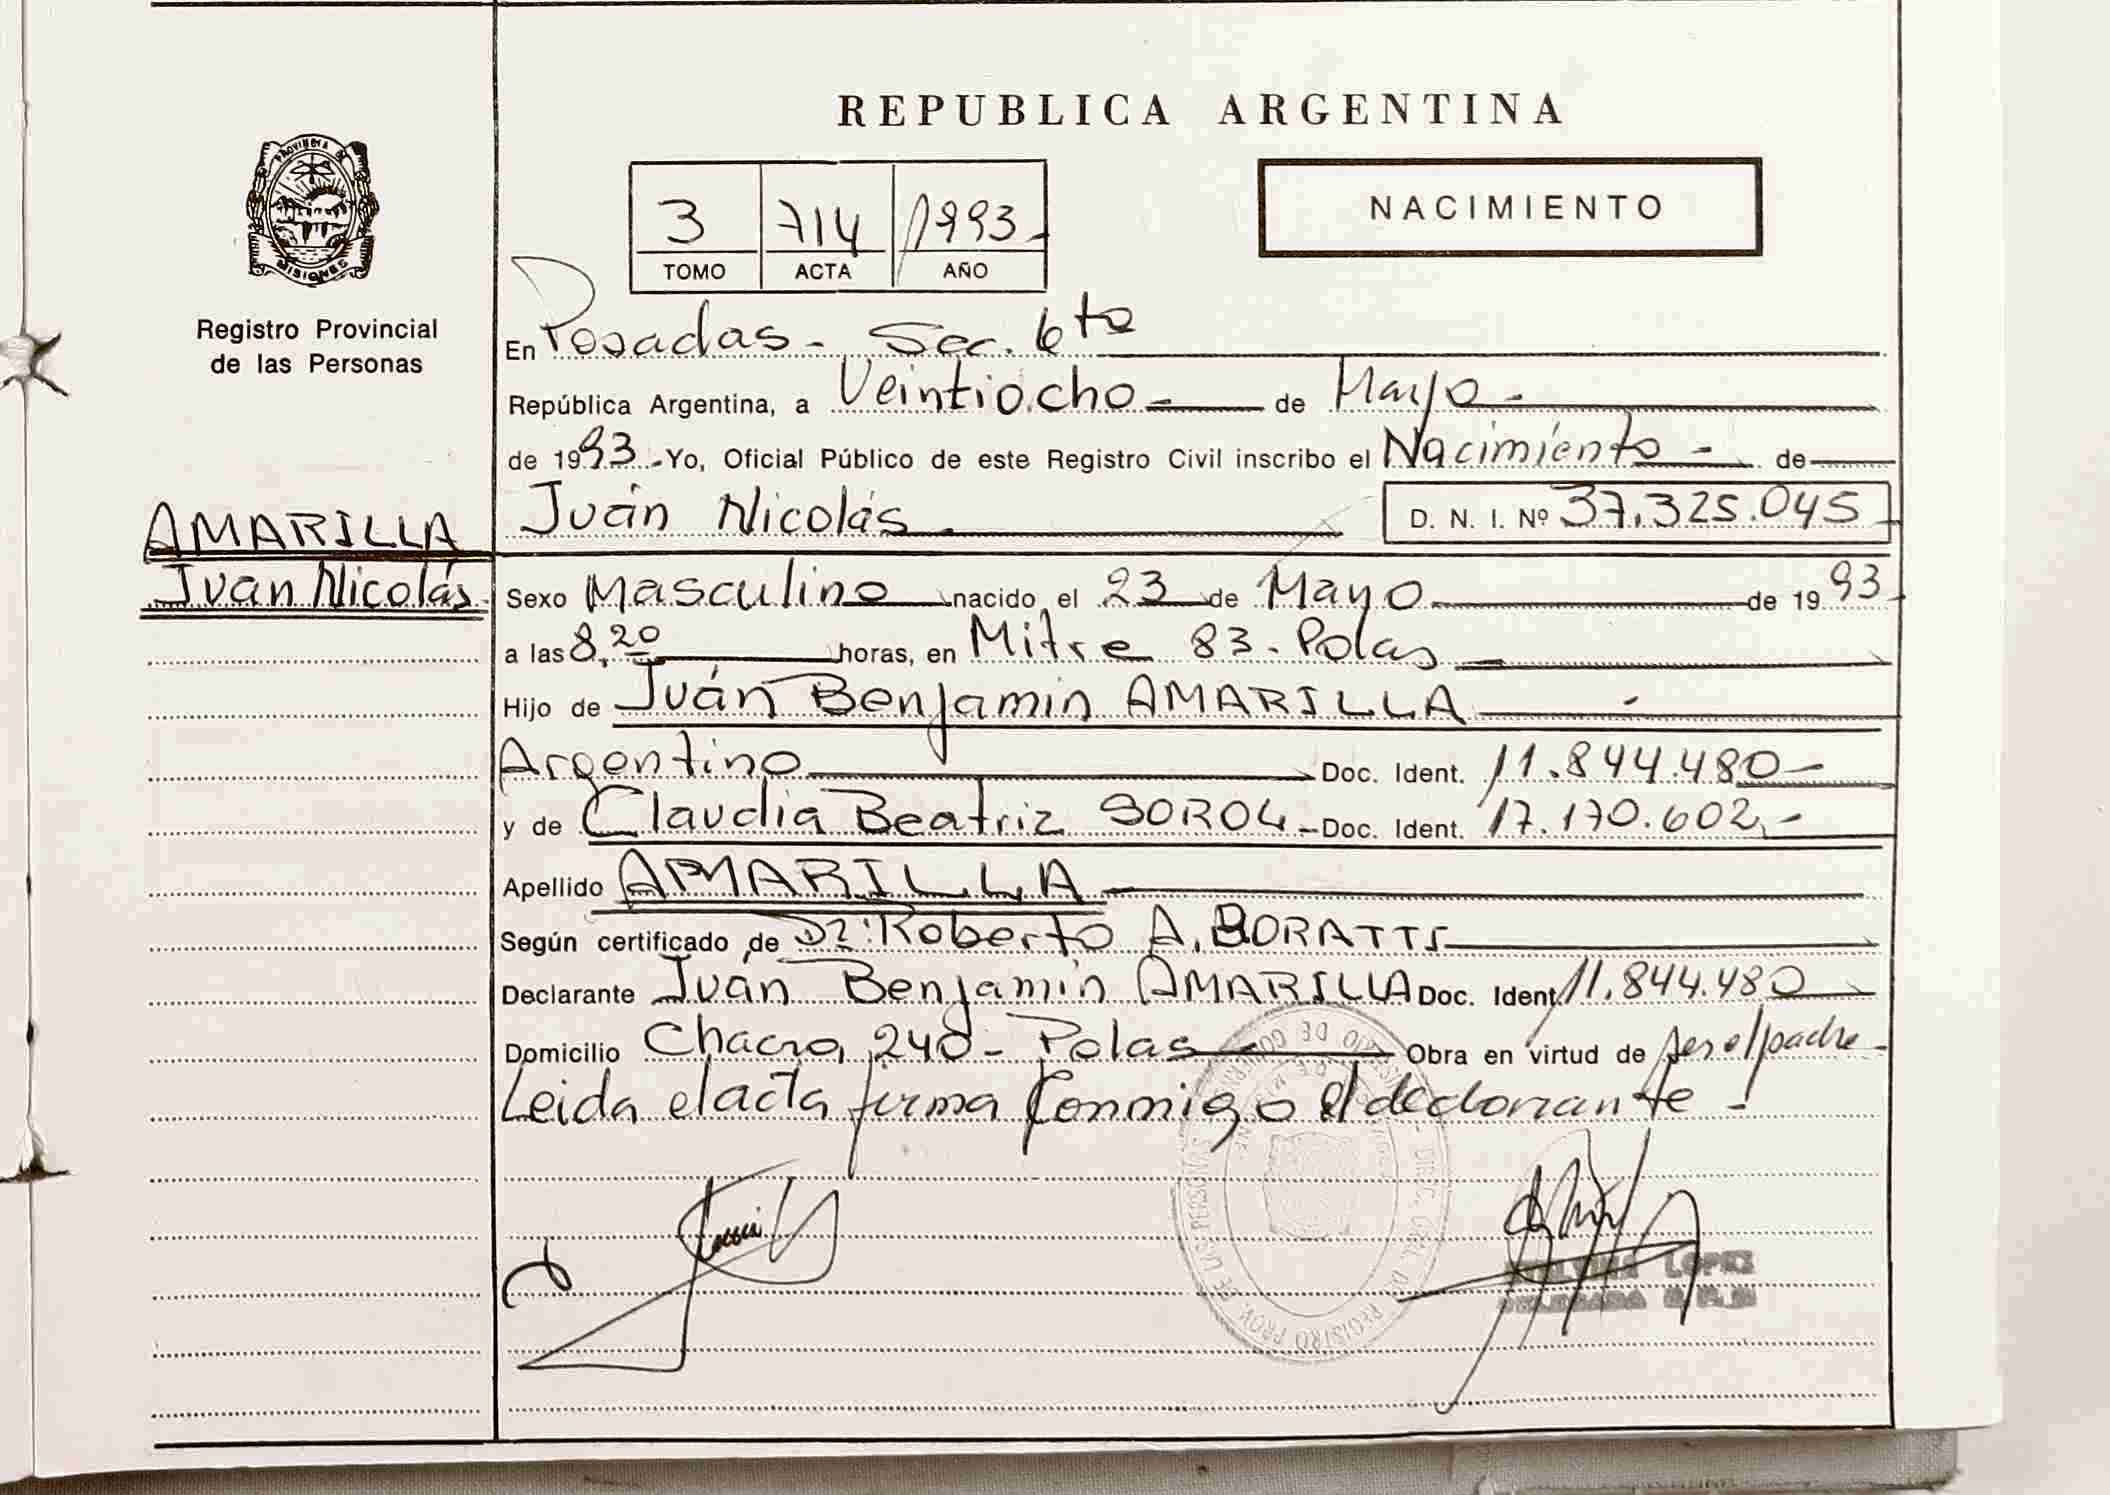 REPUBLICA ARGENTINA
NACIMIENTO
3 714 1993-
TOMO ACTA AÑO
PROVINCIA DE MISIONES
Registro Provincial
de las Personas
AMARILLA
Juan Nicolás
En Posadas - Sec. 6to
República Argentina, a Veintiocho - de Mayo -
de 1993.- Yo, Oficial Público de este Registro Civil inscribo el Nacimiento - de
Juán Nicolás. D. N. I. Nº 37.325.045
Sexo Masculino nacido el 23 de Mayo de 1993
a las 8,20 horas, en Mitre 83 - Pdas
Hijo de Juán Benjamin AMARILLA -
Argentino Doc. Ident. 11.844.480-
y de Claudia Beatriz SOROL - Doc. Ident. 17.170.602.-
Apellido AMARILLA -
Según certificado de Dr. Roberto A. BORATTI
Declarante Juán Benjamin AMARILLA Doc. Ident. 11.844.480
Domicilio Chacra 240 - Pdas - Obra en virtud de ser el padre -
Leida el acta firma conmigo el declarante -
LOPEZ